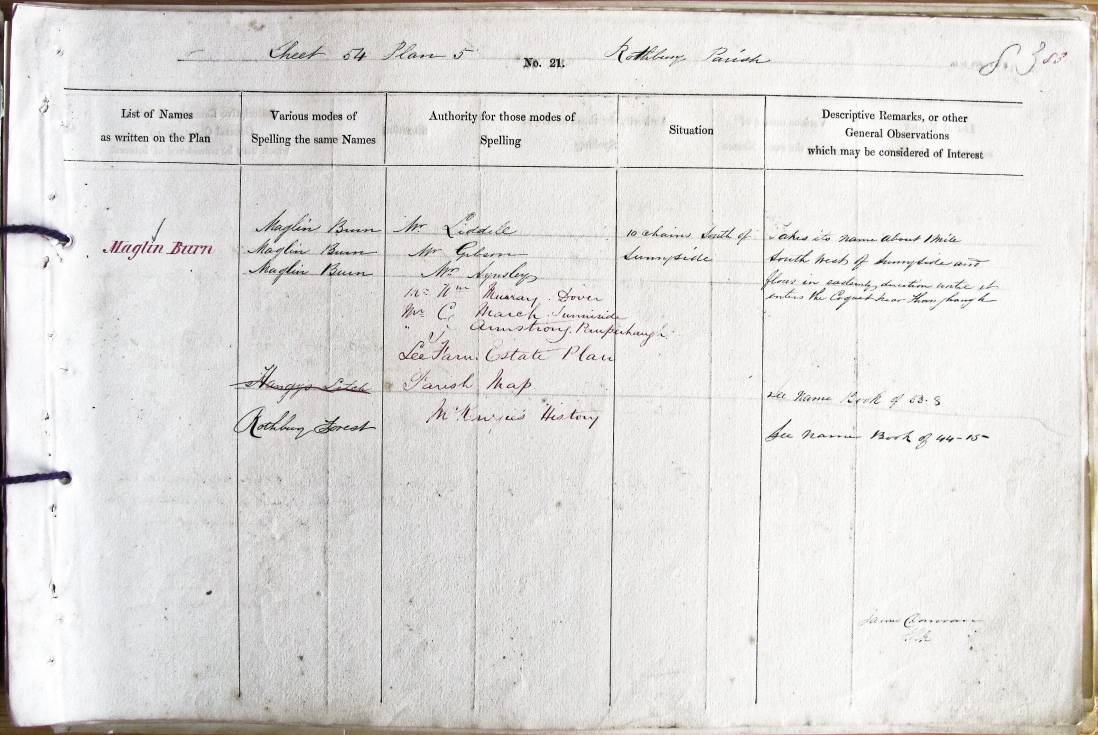 Sheet 54 Plan 5 No. 21. Rothbury Parish 83
List of Names
as written on the Plan
Various modes of
Spelling the same Names
Authority for those modes of
Spelling
Situation
Descriptive Remarks, or other
General Observations
which may be considered of Interest
Maglin Burn
Maglin Burn
Maglin Burn
Maglin Burn
Mr Liddell
Mr Gibson
Mr Aynsley
Wm Murray. Dover
Mr C. March. Sunniside
" J. Armstrong. Pauperhaugh
Lee Farm Estate Plan
10 chains South of
Sunnyside
Takes its name about 1 Mile
South West of Sunnyside and
flows in easterly direction until it
enters the Coquet near
Letch
Parish Map
See Name Book of 53-8
Rothbury Forest
History
See Name Book of 44-15